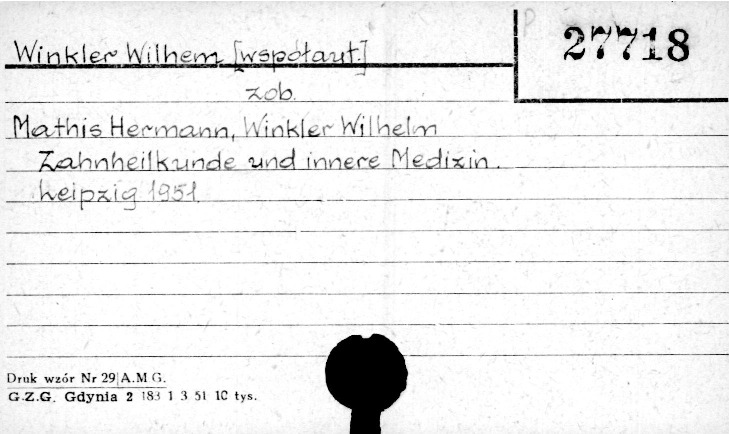 P 27718
Winkler Wilhem [współaut.]
zob.
Mathis Hermann, Winkler Wilhelm
Zahnheilkunde und innere Medizin.
Leipzig 1951
Druk wzór Nr 29 A.M G.
G.Z.G. Gdynia 2 183 1 3 51 10 tys.